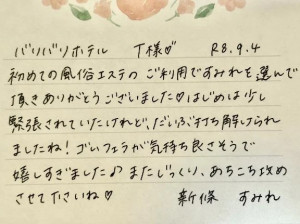 バリバリホテル T様♡ R8.9.4
初めての風俗エステのご利用ですみれを選んで
頂きありがとうございました♡はじめは少し
緊張されていたけれど、だいぶ打ち解けられ
ましたね！ごいフェラが気持ち良さそうで
嬉しすぎました♪またじっくり、あちこち攻め
させて下さいね♡ 新條 すみれ